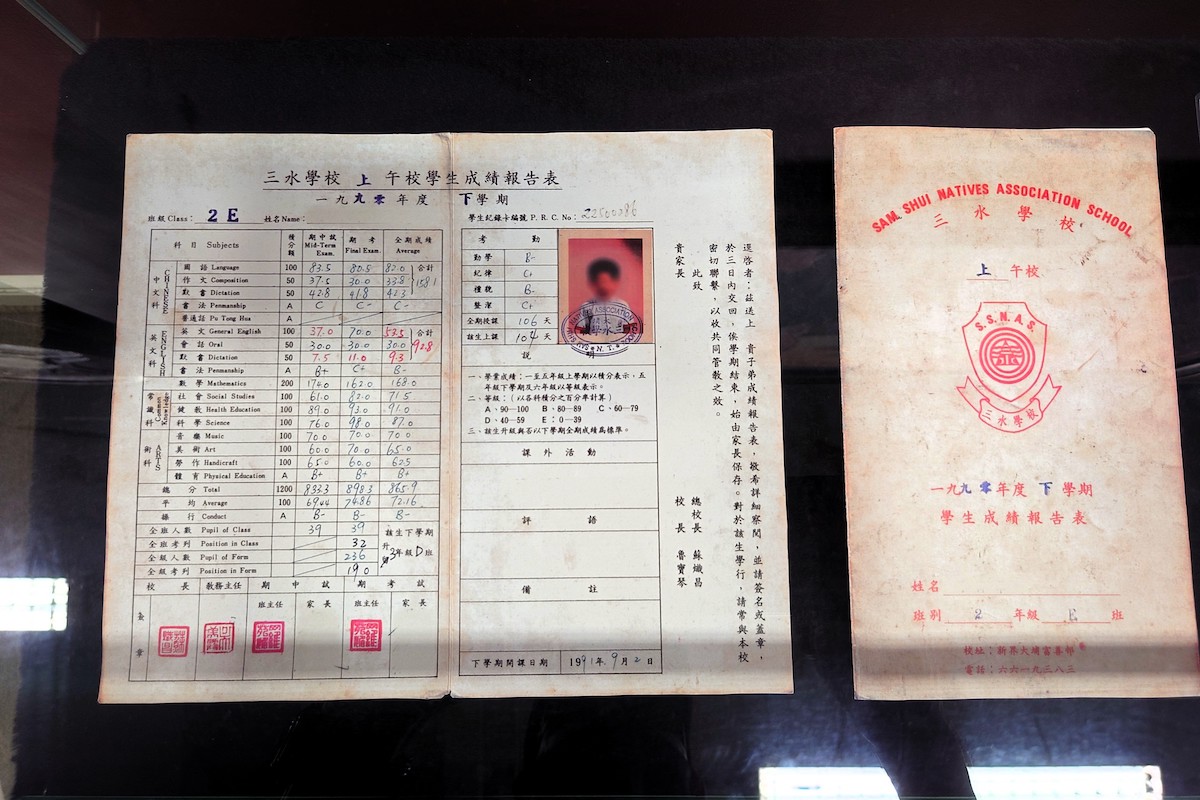 三水學校 上 午校學生成績報告表
一九九零年度 下學期
班級 Class: 2E 姓名 Name: 學生紀錄卡編號 P. R. C. No:
科目 Subjects 積分額 期中試 Mid-Term Exam. 期考 Final Exam. 全期成績 Average
中文科 CHINESE
國語 Language 100 83.5 80.5 82.0 合計
作文 Composition 50 37.5 30.0 33.8 158.1
默書 Dictation 50 42.8 41.8 42.3
書法 Penmanship A C C- C-
普通話 Pu Tong Hua A
英文科 ENGLISH
英文 General English 100 37.0 70.0 53.5 合計
會話 Oral 50 30.0 30.0 30.0 92.8
默書 Dictation 50 7.5 11.0 9.3
書法 Penmanship A B+ C+ B-
數學 Mathematics 200 174.0 162.0 168.0
常識科 Common Knowledge
社會 Social Studies 100 61.0 82.0 71.5
健教 Health Education 100 89.0 93.0 91.0
科學 Science 100 76.0 98.0 87.0
術科 ARTS
音樂 Music 100 70.0 70.0 70.0
美術 Art 100 60.0 70.0 65.0
勞作 Handicraft 100 65.0 60.0 62.5
體育 Physical Education A B+ B+ B+
總分 Total 1200 833.3 898.3 865.9
平均 Average 100 69.44 74.86 72.16
操行 Conduct A B- B- B-
全班人數 Pupil of Class 39 39 該生下學期
全班考列 Position in Class 32
全級人數 Pupil of Form 236 升 3年級D班
全級考列 Position in Form 190
校長 教務主任 期中試 期考試
班主任 家長 班主任 家長
蓋章
考勤
勤學 B-
紀律 C+
禮貌 B-
整潔 C+
全期授課 106 天
該生上課 104 天
SAM SHUI NATIVES ASSOCIATION SCHOOL
三水學校
N.T.
說明
一、學業成績:一至五年級上學期以積分表示,五
年級下學期及六年級以等級表示。
二、等級:(以各科積分之百分率計算)
A、90—100 B、80—89 C、60—79
D、40—59 E:0—39
三、該生升級與否以下學期全期成績爲標準。
課外活動
評語
備註
下學期開課日期 1991年9月2日
逕啓者:茲送上 貴子弟成績報告表,敬希詳細察閱,並請簽名或蓋章,
於三日內交回,俟學期結束,始由家長保存。對於該生學行,請常與本校
密切聯繫,以收共同管教之效。
此致
貴家長
總校長 蘇熾昌
校長 魯寶琴
SAM SHUI NATIVES ASSOCIATION SCHOOL
三水學校
上 午校
S.S.N.A.S.
三水學校
一九九零年度 下學期
學生成績報告表
姓名
班別 2 年級 E 班
校址:新界大埔富善邨
電話:六六一九三八三